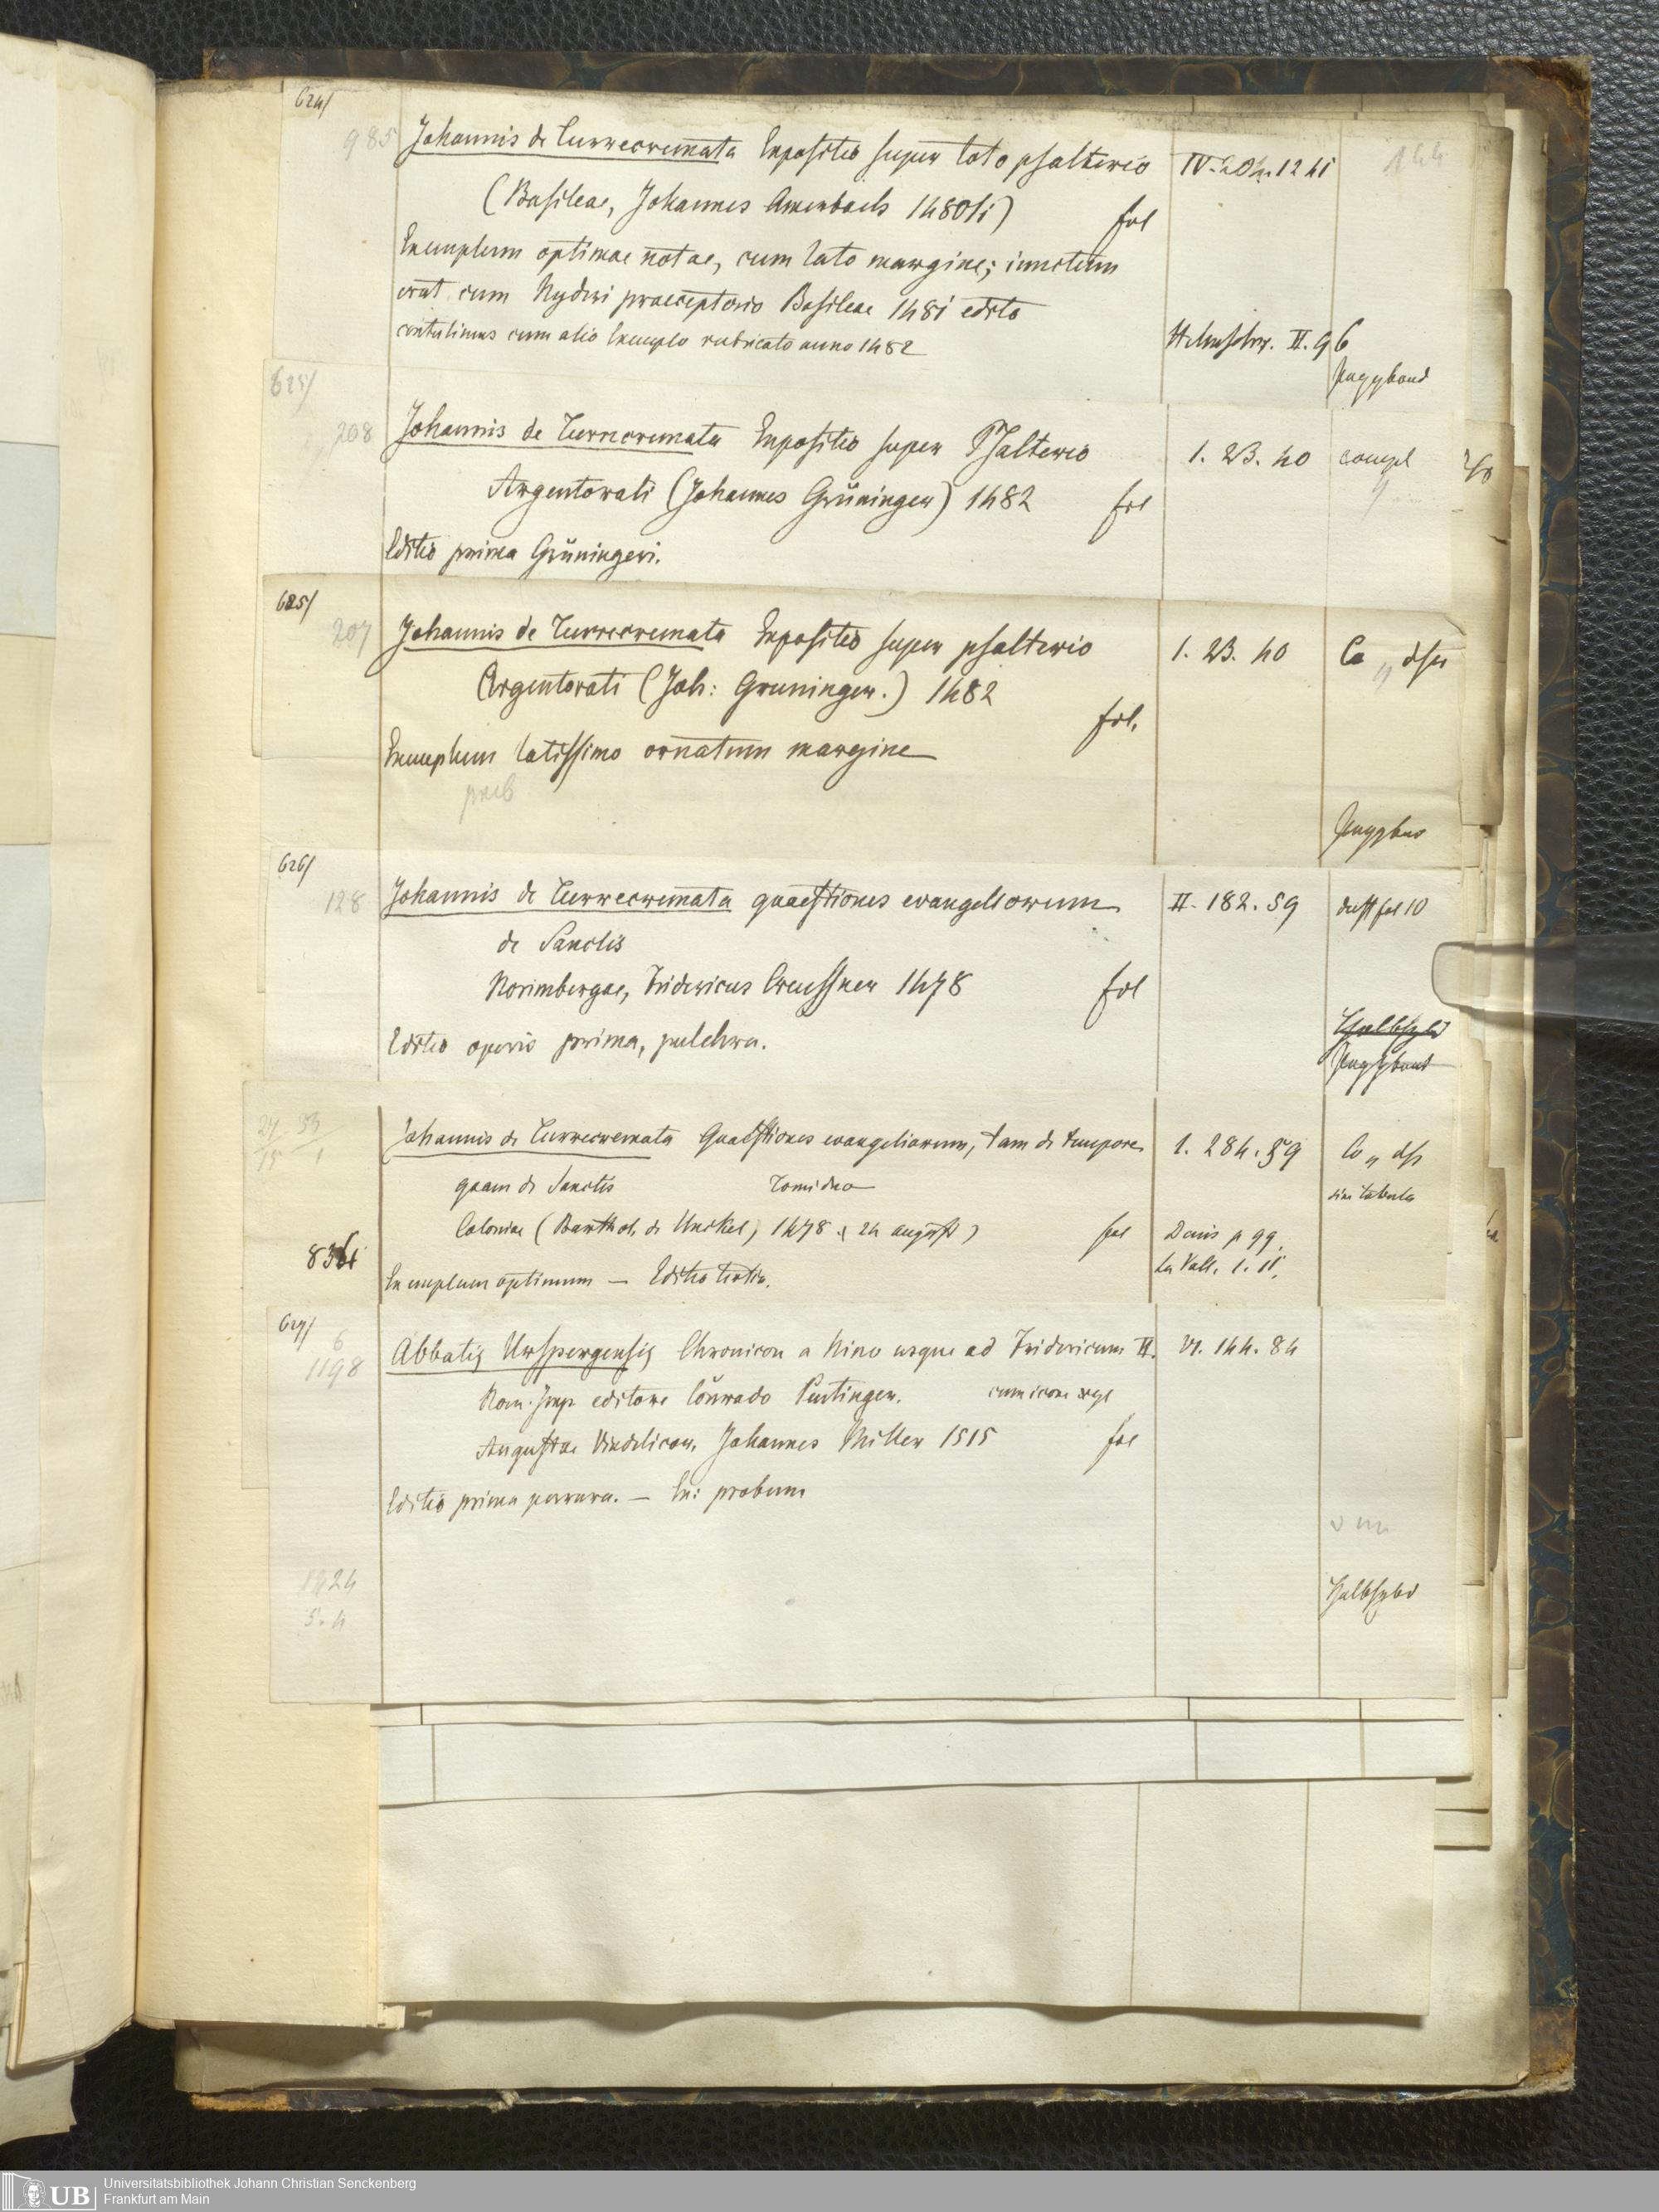 624/
985 Johannis de Turrecremata Expositio super toto psalterio IV. 204. 1241 144
(Basileae, Johannes Amerbach 1480/1) fol
Exemplum optimae notae, cum lato margine; iunctum
erat cum Nyderi praeceptorio Basileae 1481 edito
contulimus cum alio Exemplo rubricato anno 1482 Helmschr. II. 96
Puggband
625/
208 Johannis de Turrecremata Expositio super Psalterio 1. 23. 40 compl
Argentorati (Johannes Grüninger) 1482 fol
Editio prima Grüningeri.
625/
207 Johannis de Turrecremata Expositio super psalterio 1. 23. 40 Co „ dss
Argentorati (Joh: Gruninger.) 1482
fol.
Exemplum latissimo ornatum margine
626/
128 Johannis de Turrecremata quaestiones evangeliorum II. 182. 59 deest fol 10
de Sanctis
Norimbergae, Fridericus Creussner 1478 fol
Editio operis prima, pulchra.
Halbfzbd
Puggband
Johannis de Turrecremata Quaestiones evangeliorum, tam de tempore 1. 284. 59 Co „ dss
quam de Sanctis Tomi duo sine tabula
Coloniae (Barthol. de Unckel, 1478 24 august) fol Denis p 99.
La Vall. 1. 11.
836
Exemplum optimum — Editio tertia.
627/
6
1198 Abbatis Urspergensis Chronicon a Nino usque ad Fridericum II. VI. 144. 84
Rom. Imp editore Conrado Peutinger. cum icone
Augustae Vindelicor. Johannes Miller 1515 fol
Editio prima perrara. — Ex: probum
1424
5. 4
Halbfzbd
UB Universitätsbibliothek Johann Christian Senckenberg
Frankfurt am Main